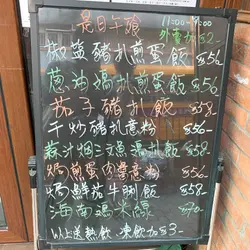 是日午餐
11:00-9:00
外賣加$2-
椒鹽豬扒煎蛋飯 $56
蔥油鷄扒煎蛋飯 $56
茄子豬扒飯 $58-
干炒豬扒意粉 $56-
蒜汁烟三文魚鷄扒飯 $58-
焗煎蛋肉醬意粉 $56-
焗鮮茄牛脷飯 $58-
海南鷄米線
以上送熱飲，凍飲加$3-